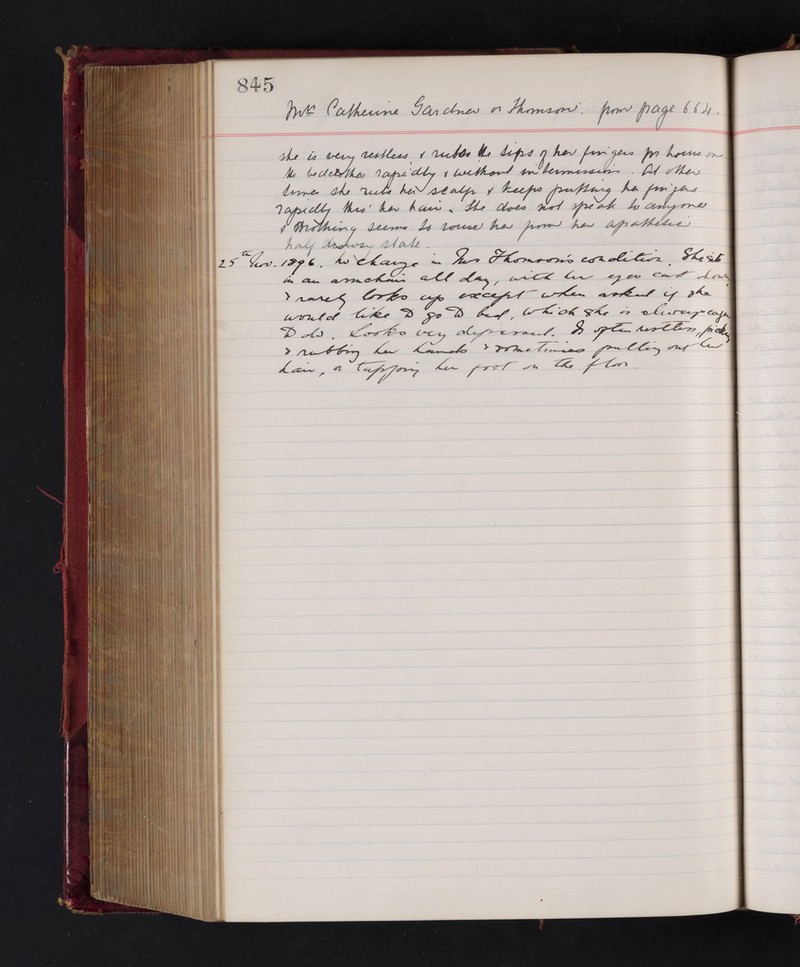 845
Mrs Catherine Gardner or Thomson. from page 664.
she is very restless, & rubs the tips of her fingers for hours on
the bedclothes rapidly & without intermission. At other
times she rubs her scalp & keeps putting her fingers
rapidly thro' her hair. She does not speak to anyone
& nothing seems to rouse her from her apathetic
half drowsy state.
25th Nov. 1896. No change in Mrs Thomson's condition. She sits
in an armchair all day, with her eyes cast down
& rarely looks up except when asked if she
would like to go to bed, which she is always eager
to do. Looks very depressed. Is often restless,
& rubbing her hands & sometimes pulling out her
hair, or tapping her foot on the floor.